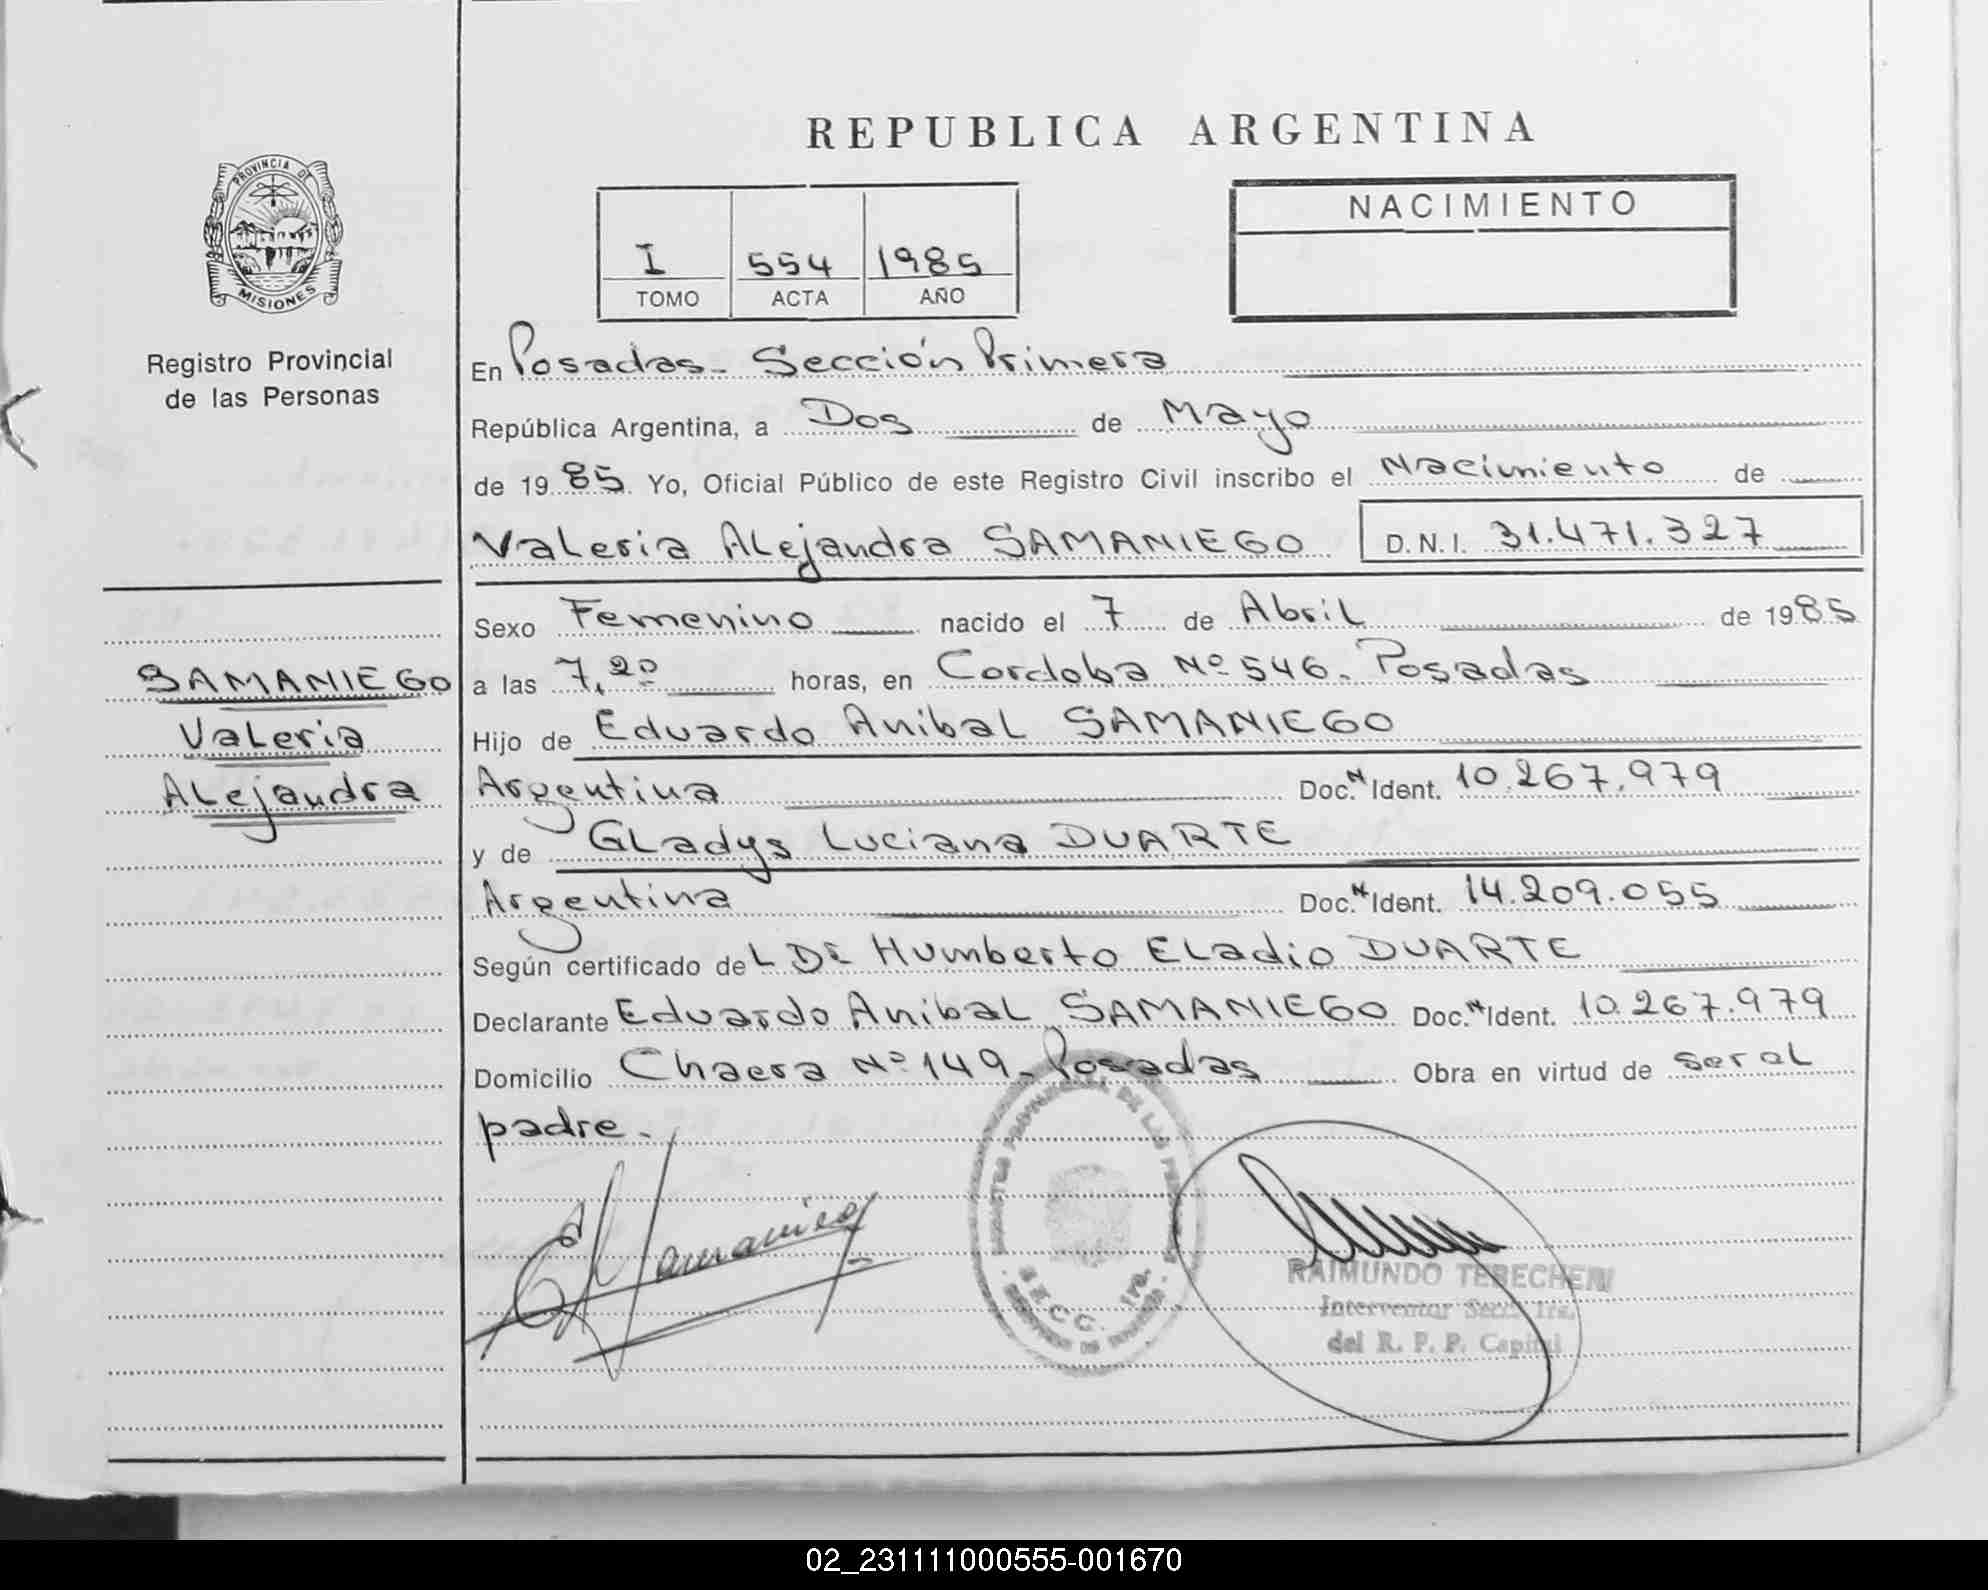 REPUBLICA ARGENTINA
PROVINCIA DE
MISIONES
Registro Provincial
de las Personas
I 554 1985
TOMO ACTA AÑO
NACIMIENTO
En Posadas - Sección Primera
República Argentina, a Dos de Mayo
de 1985 Yo, Oficial Público de este Registro Civil inscribo el Nacimiento de
Valeria Alejandra SAMANIEGO D.N.I. 31.471.327
Sexo Femenino nacido el 7 de Abril de 1985
a las 7,20 horas, en Cordoba Nº 546. Posadas
Hijo de Eduardo Anibal SAMANIEGO
Argentina Doc. N Ident. 10.267.979
y de Gladys Luciana DUARTE
Argentina Doc. N Ident. 14.209.055
Según certificado del Dr Humberto Eladio DUARTE
Declarante Eduardo Anibal SAMANIEGO Doc. N Ident. 10.267.979
Domicilio Nº 149 - Posadas Obra en virtud de ser al
padre.
SAMANIEGO
Valeria
Alejandra
DE LAS
SECC. 1ra.
RAIMUNDO
Interventor Secc. 1ra.
del R. P. P. Capital
02_231111000555-001670